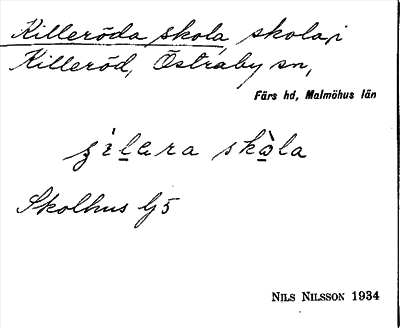 Killeröda skola, skola i
Killeröd, Östraby sn,
Färs hd, Malmöhus län
skola
Skolhus Gj 5
NILS NILSSON 1934